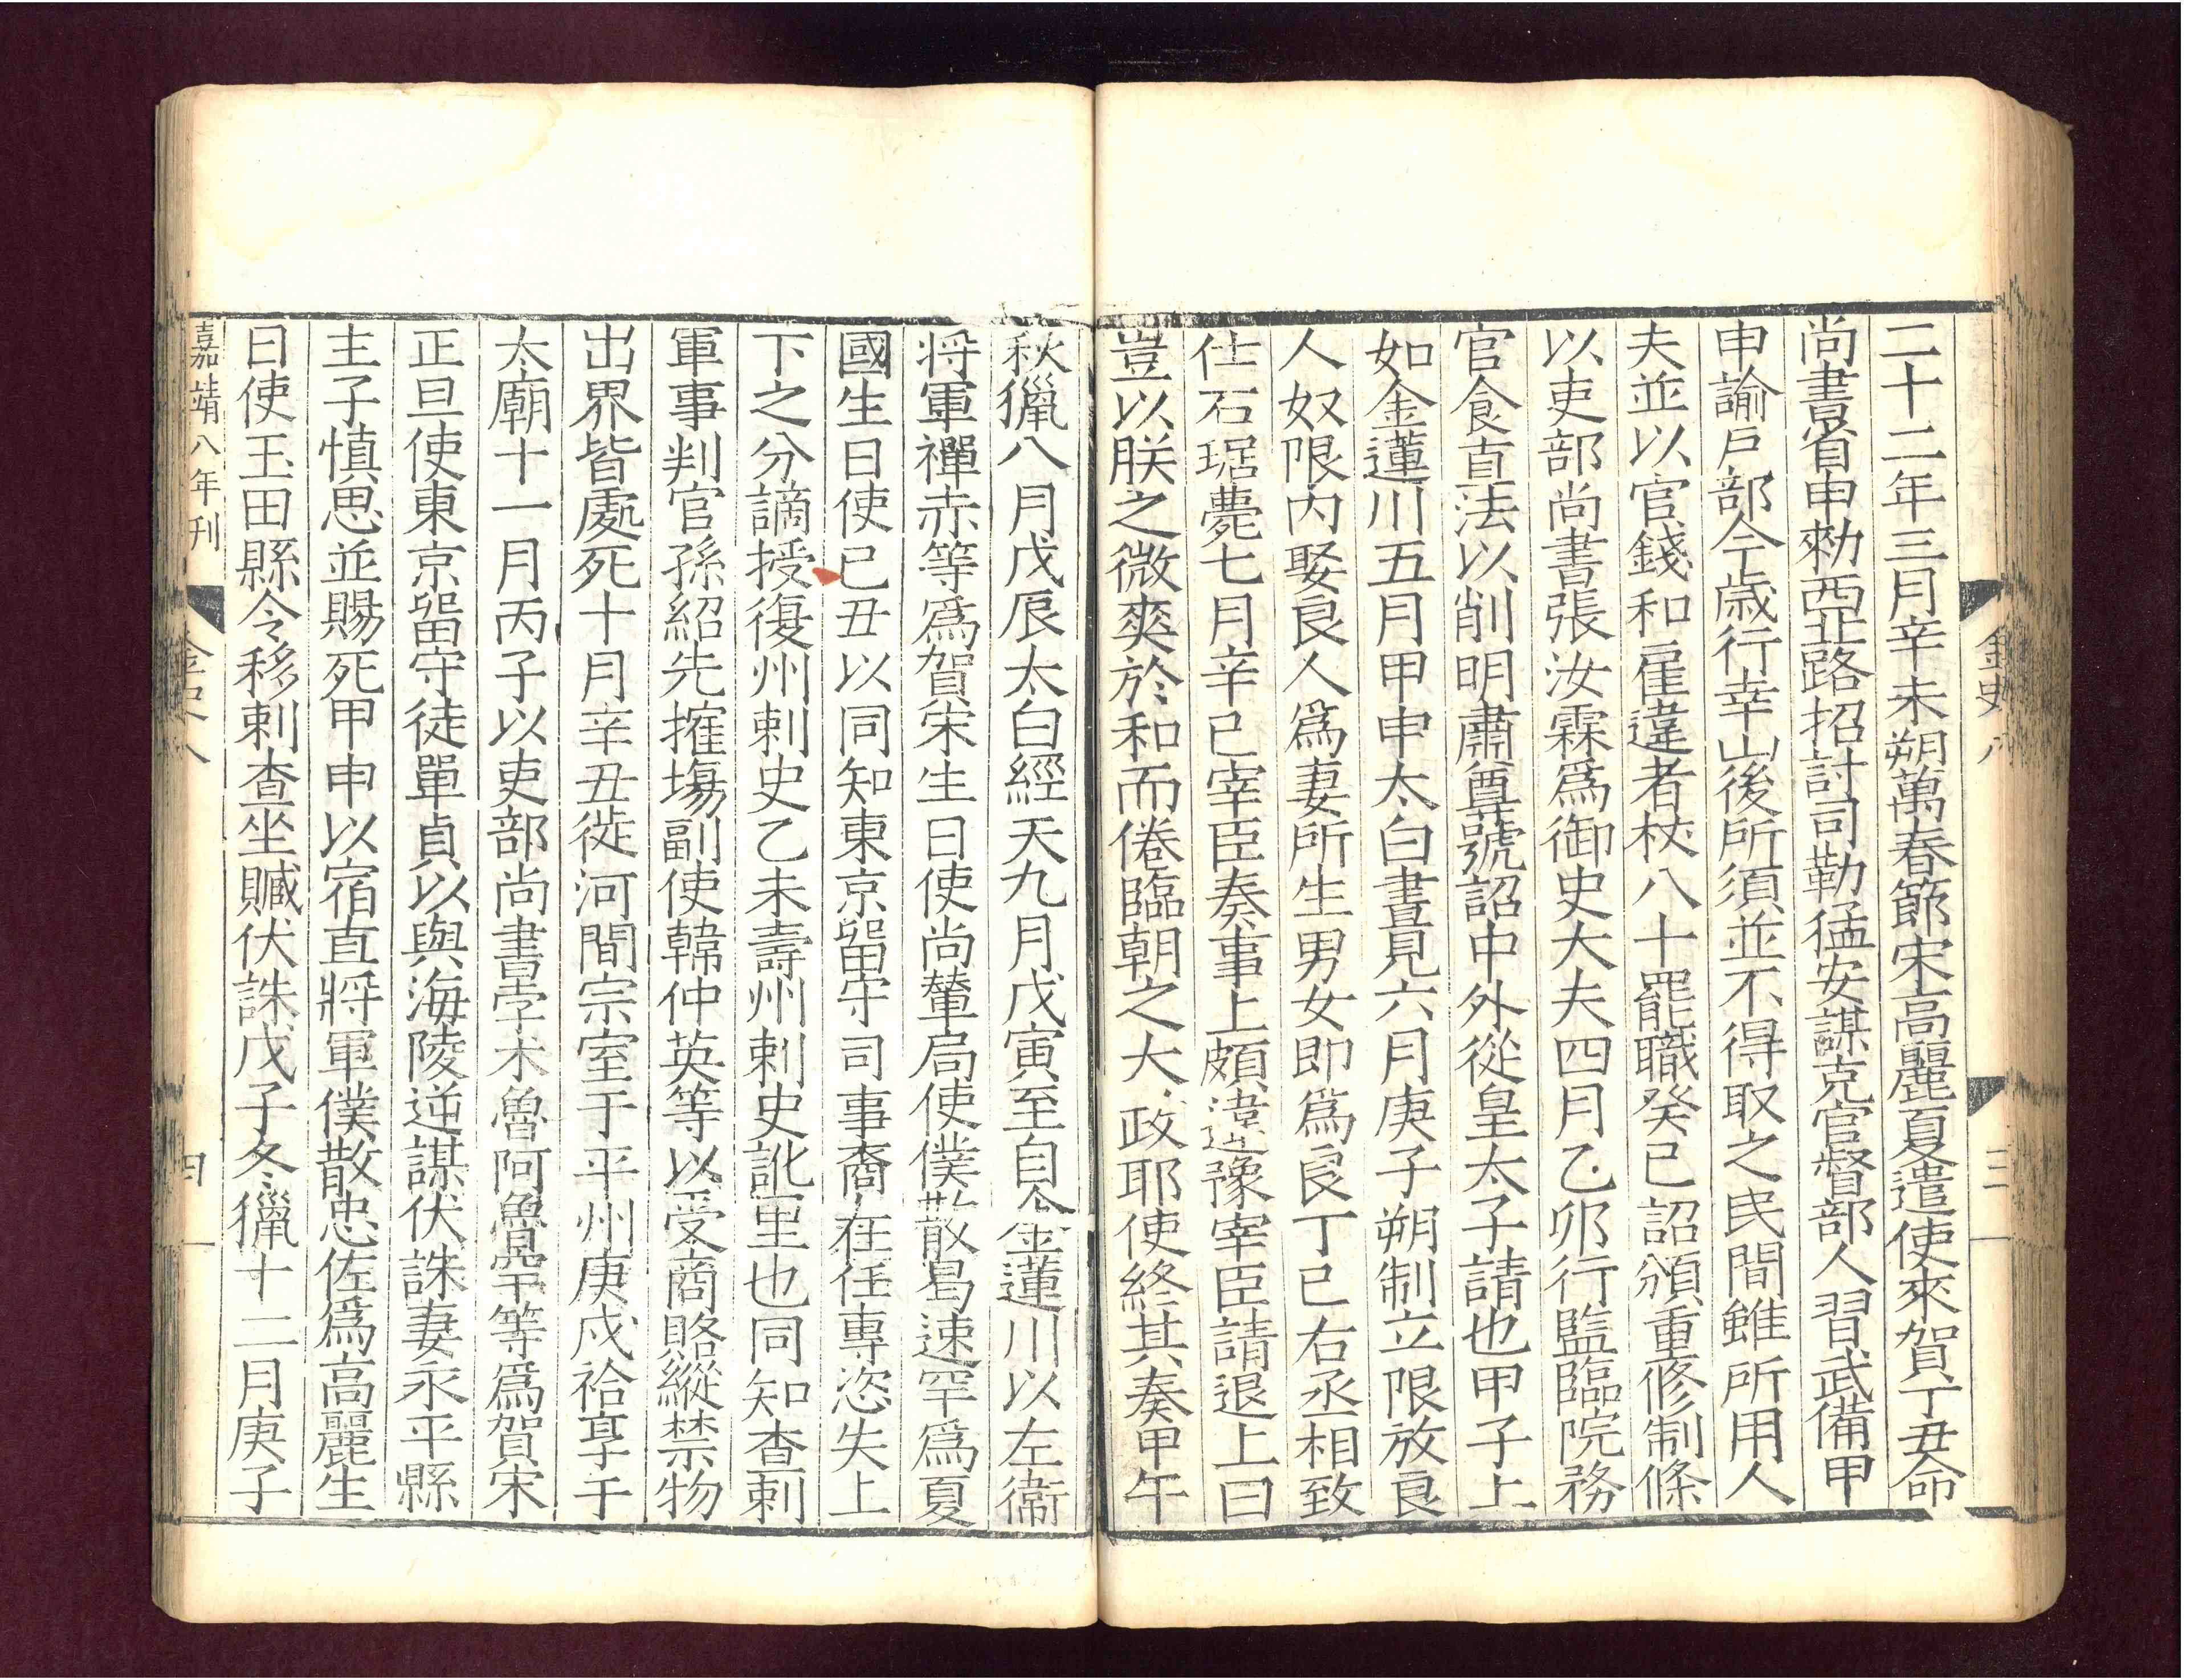 金史八
三
二十二年三月辛未朔萬春節宋高麗夏遣使來賀丁丑命
尚書省申勑西北路招討司勒猛安謀克官督部人習武備甲
申諭戶部今歲行幸山後所須並不得取之民間雖所用人
夫並以官錢和雇違者杖八十罷職癸巳詔頒重修制條
以吏部尚書張汝霖爲御史大夫四月乙卯行監臨院務
官食直法以削明肅尊號詔中外從皇太子請也甲子上
如金蓮川五月甲申太白晝見六月庚子朔制立限放良
人奴限內娶良人爲妻所生男女即爲良丁巳右丞相致
仕石琚薨七月辛巳宰臣奏事上頗違豫宰臣請退上曰
豈以朕之微爽於和而倦臨朝之大政耶使終其奏甲午
秋獵八月戊辰太白經天九月戊寅至自金蓮川以左衞
將軍禪赤等爲賀宋生日使尚輦局使僕散曷速罕爲夏
國生日使己丑以同知東京留守司事裔在任專恣失上
下之分謫授復州刺史乙未壽州刺史訛里也同知查剌
軍事判官孫紹先搉場副使韓仲英等以受商賂縱禁物
出界皆處死十月辛丑徙河間宗室于平州庚戌祫享于
太廟十一月丙子以吏部尚書孛术魯阿魯罕等爲賀宋
正旦使東京留守徒單貞以與海陵逆謀伏誅妻永平縣
主子慎思並賜死甲申以宿直將軍僕散忠佐爲高麗生
日使玉田縣令移剌查坐贓伏誅戊子冬獵十二月庚子
嘉靖八年刊
金史八
四